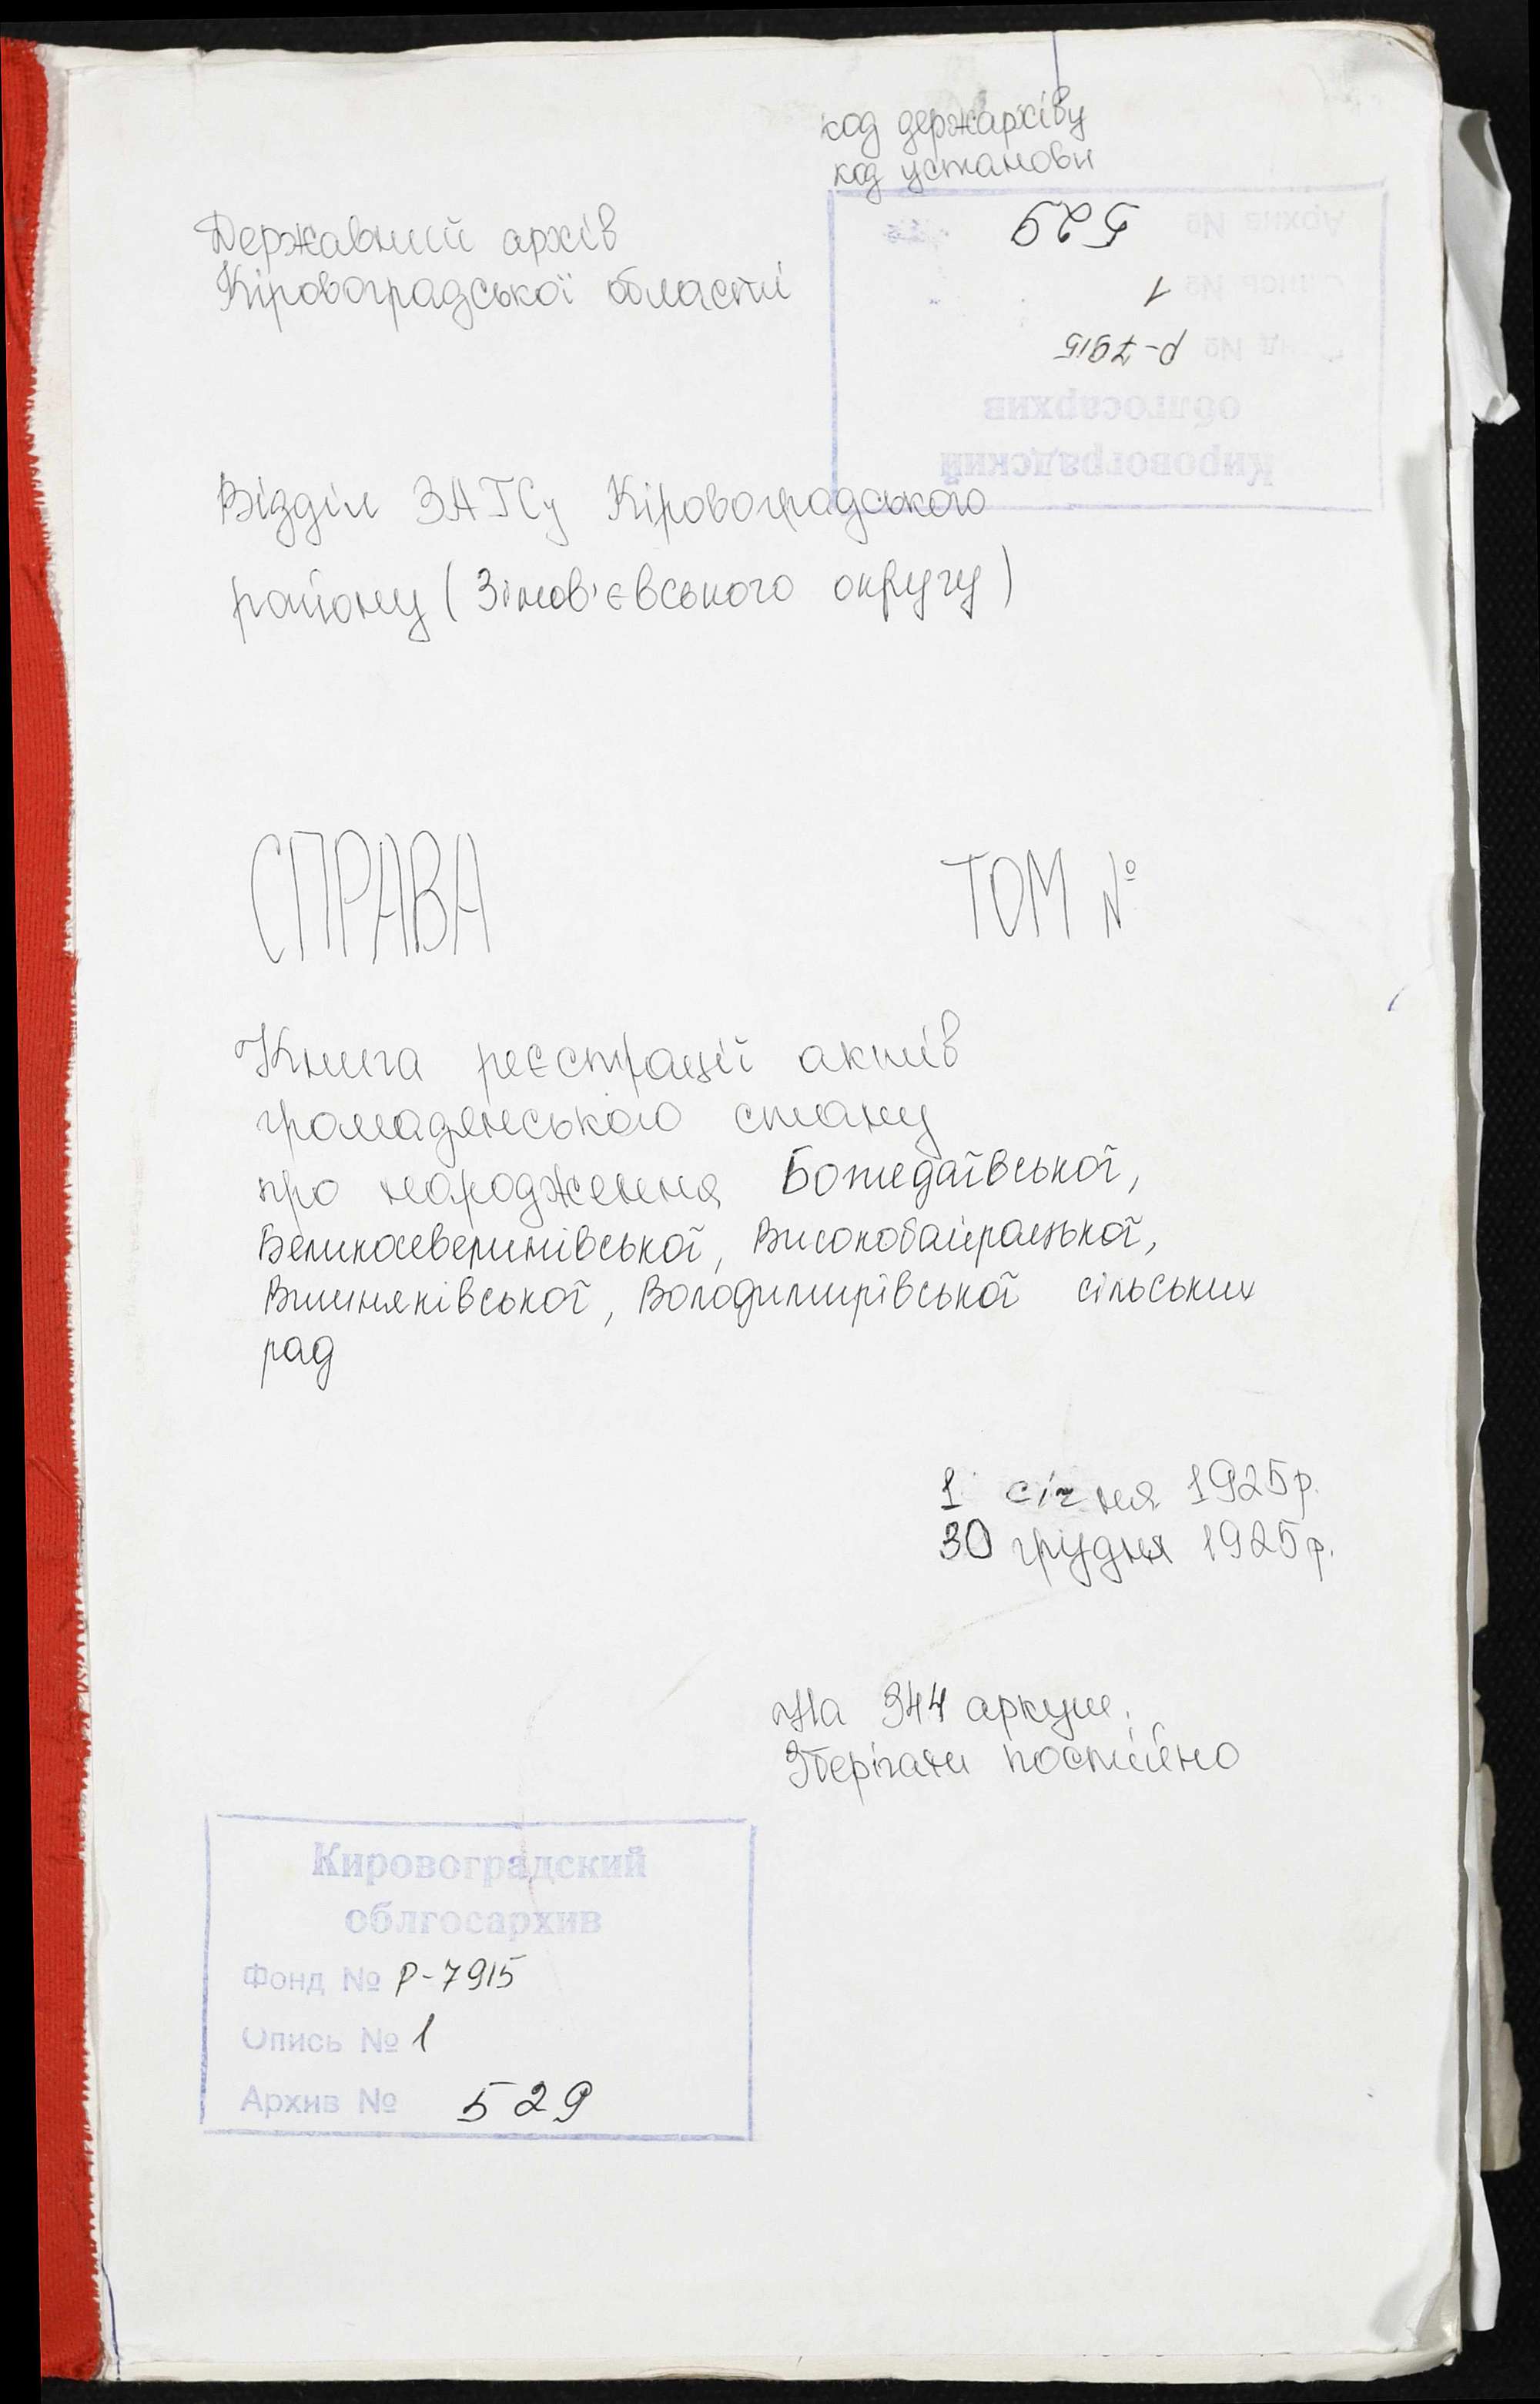 код держархіву
код установи
Державний архів
Кіровоградської області
Кировоградский
облгосархив
Фонд № Р-7915
Опись № 1
Архив № 529
Відділ ЗАГСу Кіровоградського
району (Зінов'євського округу)
СПРАВА ТОМ №
Книга реєстрації актів
громадянського стану
про народження Божедаївської,
Великосеверинівської, Високобайрацької,
Вишняківської, Володимирівської сільських
рад
1 січня 1925р.
30 грудня 1925р.
На 344 аркуш.
Зберігати постійно
Кировоградский
облгосархив
Фонд № Р-7915
Опись № 1
Архив № 529